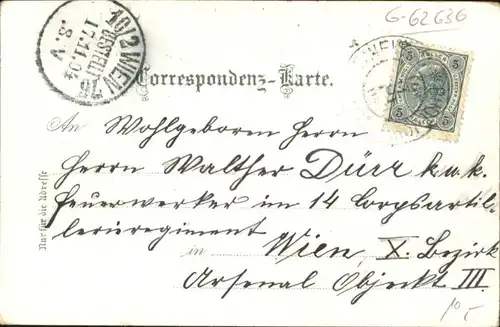 G-62636
10/2 WIEN 76
BESTELLT
17.11.04
.8.V
Correspondenz-Karte.
5 5
An Wohlgeboren Herrn
Herrn Walther Dürr k.u.k.
Feuerwerker im 14 Corpsartil-
lerieregiment
in Wien, X. Bezirk
Arsenal Objekt III.
Nur für die Adresse
10,-